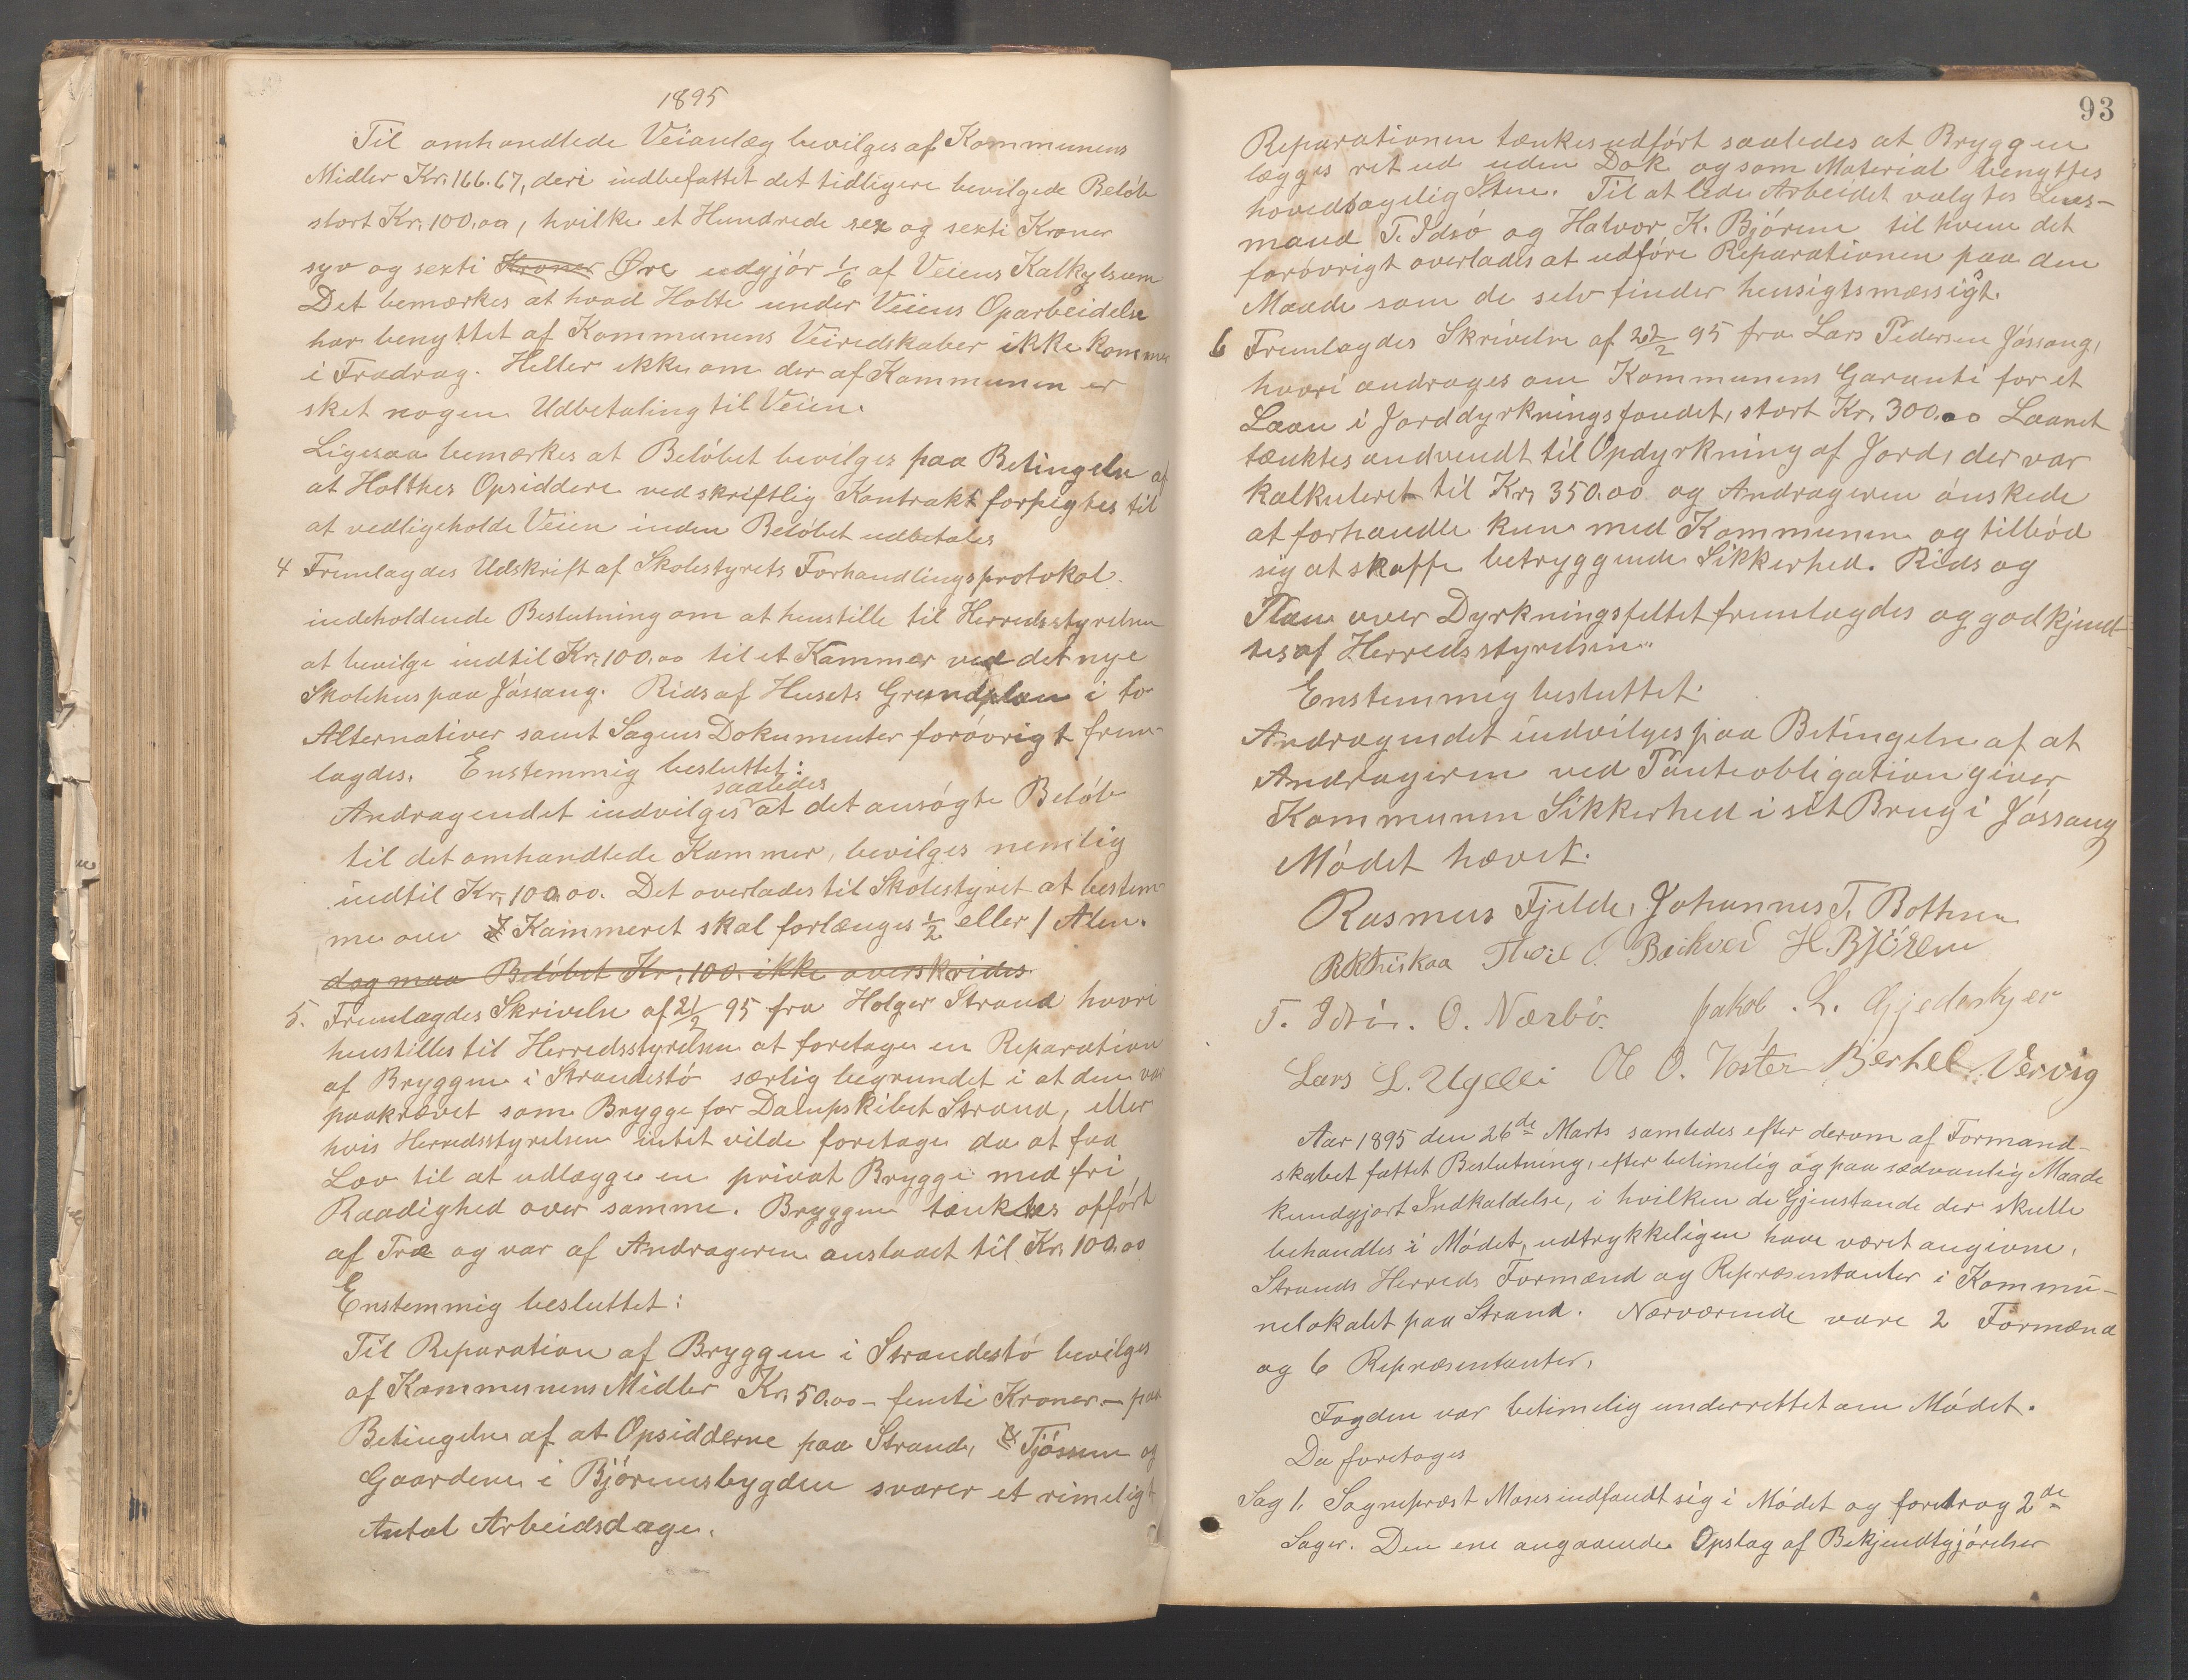 1895
Til omhandlede Veianlæg bevilges af Kommunens
Midler Kr. 166.67, deri indbefattet det tidligere bevilgede Beløb
stort Kr. 100,00, hvilke et Hundrede sex og sexti Kroner
syv og sexti Kroner Øre udgjör 1/6 af Veiens Kalkylsum
Det bemærkes at hvad Holte under Veiens Oparbeidelse
har benyttet af Kommunens Veiredskaber ikke kommer
i Fradrag. Heller ikke om der af Kommunen er
sket nogen Udbetaling til Veien.
Ligesaa bemærkes at Belöbet bevilges paa Betingelse af
at Holthes Opsiddere ved skriftlig Kontrakt forpigtes til
at vedligeholde Veien inden Belöbet udbetales
4 Fremlagdes Udskrift af Skolestyrets Forhandlingsprotokol
indeholdende Beslutning om at henstille til Herredsstyrelsen
at bevilge indtil Kr. 100,00 til et Kammer ved det nye
Skolehus paa Jössang. Rids af Husets Grundplan i to
Alternativer samt Sagens Dokumenter foröovrigt frem-
lagdes. Enstemmig besluttet:
saaledes
Andragendet indvilges at det ansögte Belöb
til det omhandlede Kammer, bevilges nemlig
indtil Kr. 100.00. Det overlades til Skolestyret at bestem-
me om Kammeret skal forlænges 1/2 eller 1 Alen.
dog maa Belöbet Kr. 100. ikke overskrides.
5. Fremlagdes Skrivelse af 21/2 95 fra Holger Strand hvori
henstilles til Herredsstyrelsen at foretage en Reparation
af Bryggen i Strandestö særlig begrundet i at den var
paakrævet som Brygge for Dampskibet Strand, eller
hvis Herredsstyrelsen intet vilde foretage da at faa
Lov til at udlægge en privat Brygge med fri
Raadighed over samme. Bryggen tænktes opfört
af Træ og var af Andrageren anslaaet til Kr. 100.00
Enstemmig besluttet:
Til Reparation af Bryggen i Strandestö bevilges
af Kommunens Midler Kr. 50.00 - femti Kroner - paa
Betingelse af at Opsidderne paa Strand, Tjössem og
Gaardene i Björemsbygden svarer et rimeligt
Antal Arbeidsdage.
93
Reparationen tænkes udfört saaledes at Bryggen
lægges ret ud uden Dok og som Material benyttes
hovedsagelig Sten. Til at lede Arbeidet valgtes Lens-
mand T. Idsö og Halvor K. Björem til hvem det
foröovrigt overlades at udföre Reparationen paa den
Maade som de selv finder hensigtsmæssigt.
6 Fremlagdes Skrivelse af 22/2 95 fra Lars Pedersen Jössang,
hvori andrages om Kommunens Garanti for et
Laan i Jorddyrkningsfondet, stort Kr. 300.00 Laanet
tænktes andvendt til Opdyrkning af Jord, der var
kalkuleret til Kr. 350.00 og Andrageren önskede
at forhandle kun med Kommunen og tilböd
sig at skaffe betryggende Sikkerhed. Rids og
Plan over Dyrkningsfeltet fremlagdes og godkjend-
tes af Herredsstyrelsen.
Enstemmig besluttet:
Andragendet indvilges paa Betingelse af at
Andrageren ved Panteobligation giver
Kommunen Sikkerhed i sit Brug i Jössang
Mödet hævet.
Rasmus Fjelde, Johannes T. Bothne
O. H. Björem
T. Idsö. O. Nærbö. Jakob L.
Lars L. Ole O. Bertel Vervig
Aar 1895 den 26de Marts samledes efter derom af Formand-
skabet fattet Beslutning, efter betimelig og paa sædvanlig Maade
kundgjort Indkaldelse, i hvilken de Gjenstande der skulle
behandles i Mödet, udtrykkeligen have været angivne,
Strands Herreds Formænd og Repræsentanter i Kommu-
nelokalet paa Strand. Nærværende vare 2 Formænd
og 6 Repræsentanter.
Fogden var betimelig underrettet om Mödet.
Da foretoges
Sag 1. Sogneprest Moses indfandt sig i Mödet og foredrog 2de
Sager. Den ene angaaende Opslag af Bekjendtgjörelser